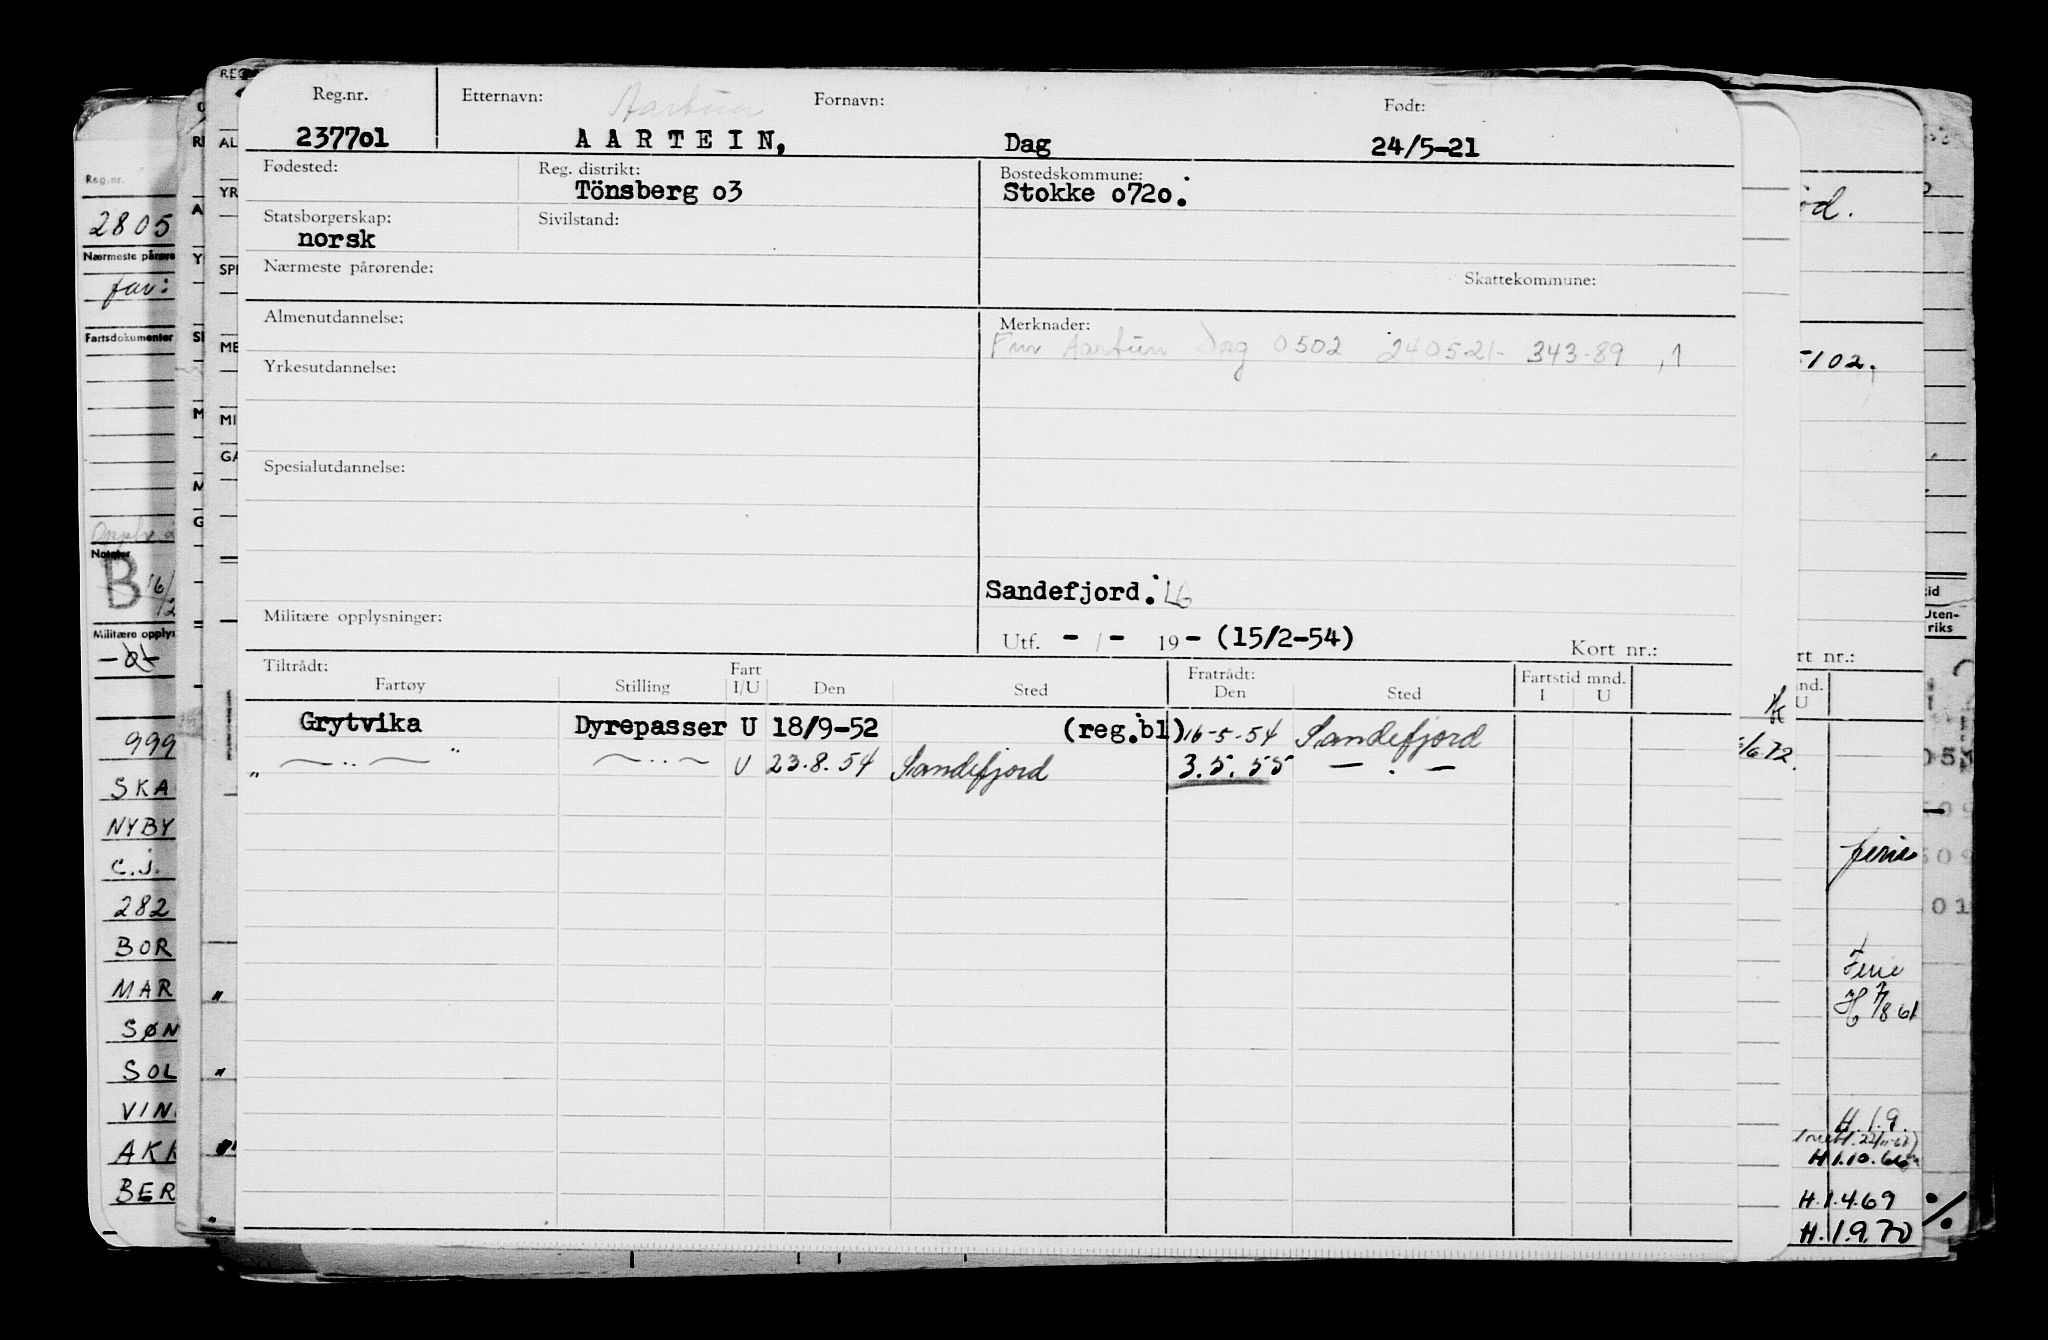 Reg.nr. Etternavn: Fornavn: Født:
237701 AARTEIN, Dag 24/5-21
Fødested: Reg. distrikt: Bostedskommune:
Tönsberg o3 Stokke o72o.
Statsborgerskap: Sivilstand:
norsk
Nærmeste pårørende: Skattekommune:
Almenutdannelse: Merknader:
Dag 0502 240521- 343-89
Yrkesutdannelse:
Spesialutdannelse:
Sandefjord. LG
Militære opplysninger:
Utf. - / - 19 - (15/2-54) Kort nr.:
Tiltrådt: Fart Fratrådt: Fartstid mnd.
Fartøy Stilling I/U Den Sted Den Sted I U
Grytvika Dyrepasser U 18/9-52 (reg.bl) 16-5-54 Sandefjord
" — " — " — " — U 23.8.54 Sandefjord 3.5.55 — . —
Reg.nr.
2805
Nærmeste pårøre
far:
Fartsdokumenter
Notater
B 16/12
Militære opplys
999
SKA
NYBY
C.J.
282
BOR
MAR
SØN
SOL
VIN
AKK
BER
REG
AL
YR
SPE
ME
MI
GA
-102.
Uten-
riks
rt nr.:
nd.
U
6/6 72.
ferie
Ferie
H 7/8 61
H.1.9.
H 1.10.66
H.1.4.69
H.1.9.70
%